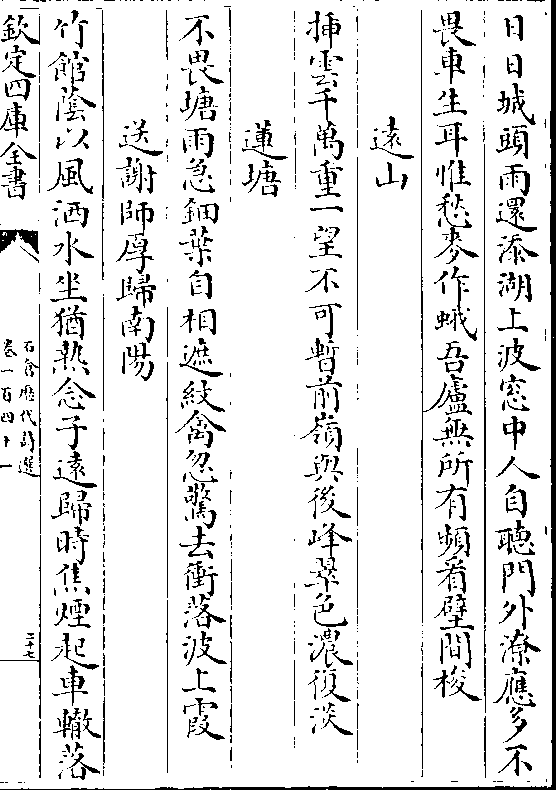 日日城頭雨還添湖上波窓中人自聽門外潦應多不
畏車生耳惟愁麥作蛾吾廬無所有頻看壁間梭
遠山
挿雲千萬重一望不可暫前嶺與後峰翠色濃復淡
蓮塘
不畏塘雨急鈿葉自相遮紋禽忽驚去衝落波上霞
送謝師厚歸南陽
竹館蔭以風洒水坐猶熱念子遠歸時焦煙起車轍落
欽定四庫全書
石倉歴代詩選
卷一百四十一
三十七